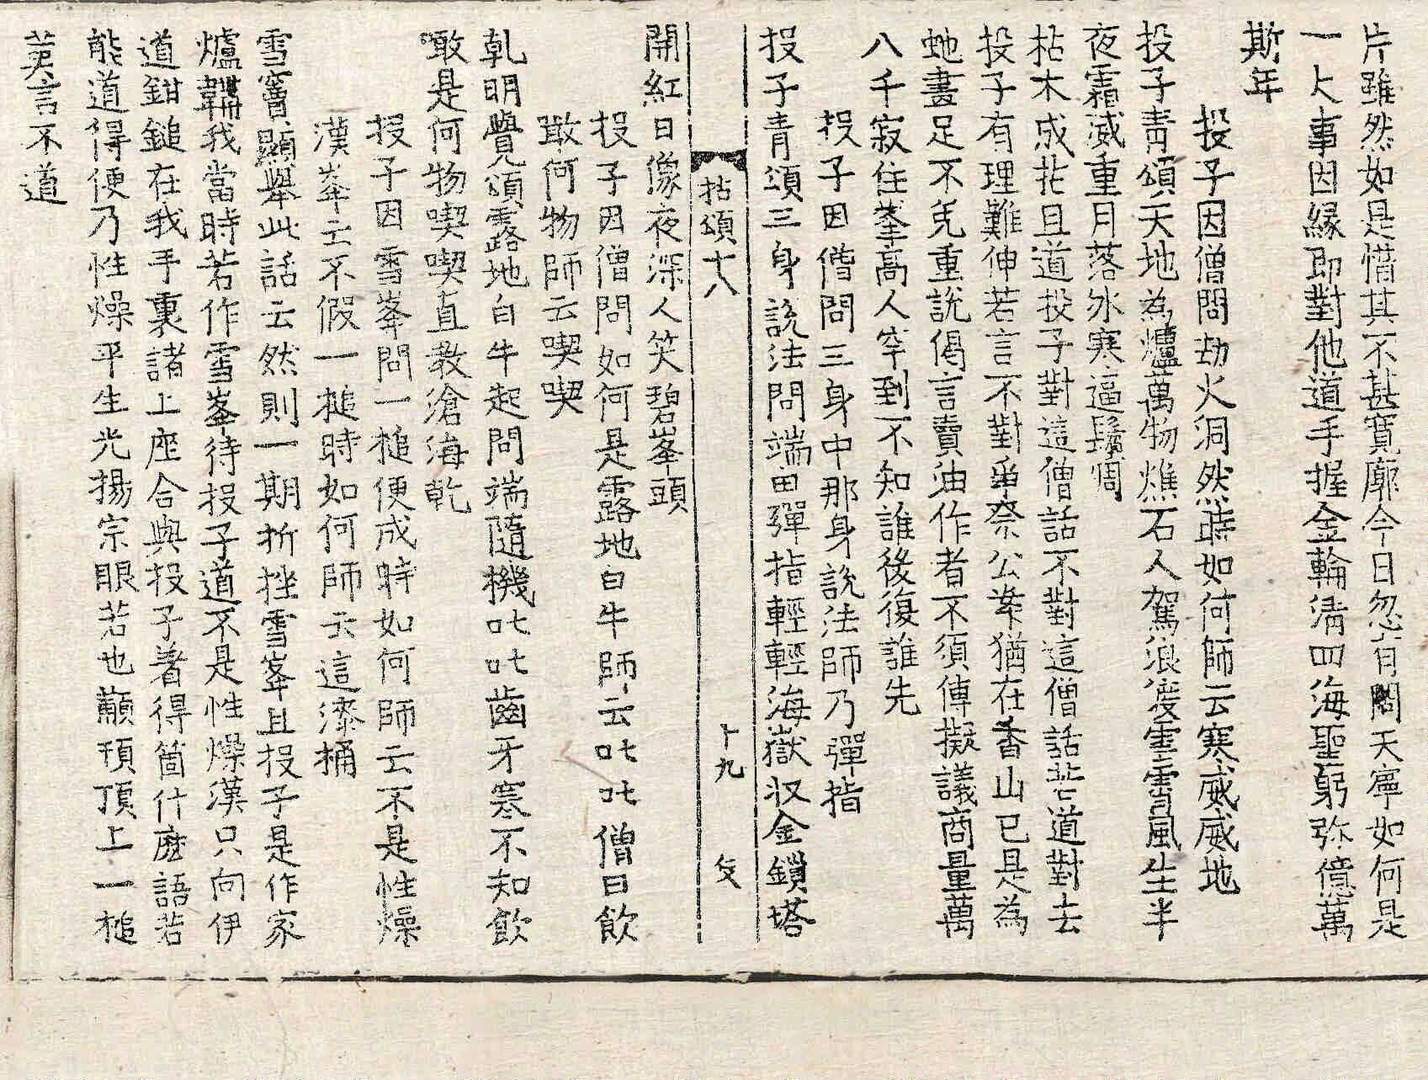 片雖然如是惜其不甚寬廓今日忽有問天寧如何是
一大事因緣即對他道手握金輪清四海聖躬弥億萬
斯年
投子因僧問劫火洞然時如何師云寒威威地
投子青頌天地為爐萬物燋石人駕浪渡雲霄風生半
夜霜威重月落氷寒逼鬢凋
枯木成拈且道投子對這僧話不對這僧話若道對去
投子有理難伸若言不對爭奈公案猶在香山已是為
虵畫足不免重說偈言賣油作者不須傳擬議商量萬
八千寂住峯高人罕到不知誰後復誰先
投子因僧問三身中那身說法師乃彈指
投子青頌三身說法問端由彈指輕輕海嶽收金鎖塔
拈頌十八 十九
開紅日像夜深人笑碧峯頭
投子因僧問如何是露地白牛師云吒吒僧曰飲
噉何物師云喫喫
乹明覺頌露地白牛起問端隨機吒吒齒牙寒不知飲
噉是何物喫喫直敎滄海乾
投子因雪峯問一槌便成時如何師云不是性燥
漢峯云不假一槌時如何師云這漆桶
雪竇顯舉此話云然則一期折挫雪峯且投子是作家
爐鞴我當時若作雪峯待投子道不是性燥漢只向伊
道鉗鎚在我手裏諸上座合與投子著得箇什麽語若
能道得便乃性燥平生光揚宗眼若也顢頇頂上一槌
莫言不道